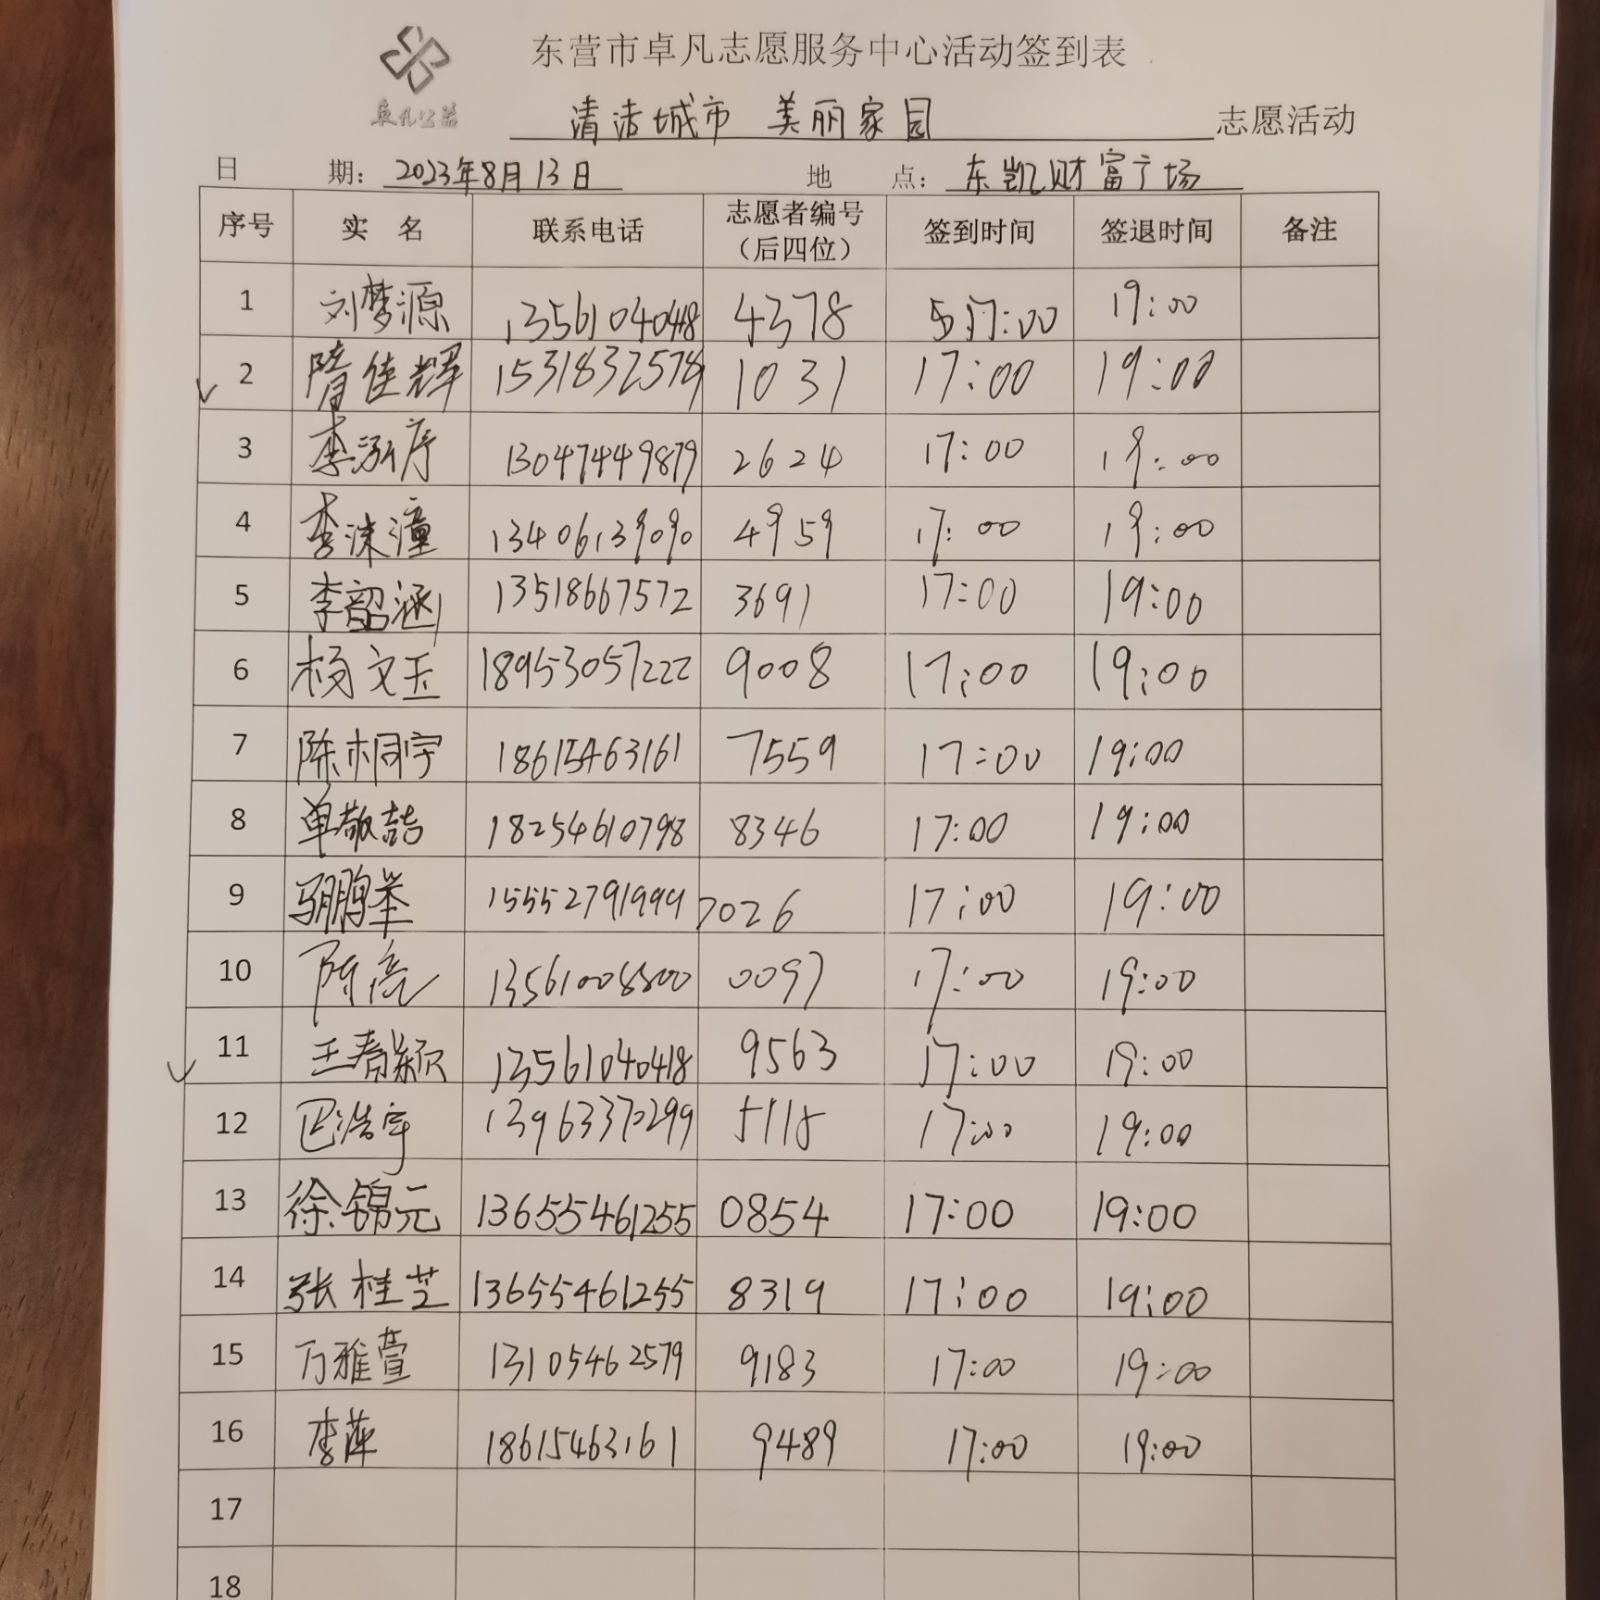 卓凡公益
东营市卓凡志愿服务中心活动签到表
清洁城市 美丽家园 志愿活动
日 期: 2023年8月13日 地 点: 东凯财富广场
序号 实 名 联系电话 志愿者编号（后四位） 签到时间 签退时间 备注
1 刘梦源 13561040418 4378 17:00 19:00
2 隋佳辉 1531832578 1031 17:00 19:00
3 李泓序 13047449879 2624 17:00 19:00
4 李沫潼 13406139090 4959 17:00 19:00
5 李韶涵 13518667572 3691 17:00 19:00
6 杨文玉 18953057222 9008 17:00 19:00
7 陈桐宇 18615463161 7559 17:00 19:00
8 单敬喆 18254610798 8346 17:00 19:00
9 15552791999 7026 17:00 19:00
10 陈亮 13561008800 0097 17:00 19:00
11 王春颖 13561040418 9563 17:00 19:00
12 巴浩宇 13963370299 5118 17:00 19:00
13 徐锦元 13655461255 0854 17:00 19:00
14 张桂芝 13655461255 8319 17:00 19:00
15 万雅萱 13105462579 9183 17:00 19:00
16 李萍 18615463161 9489 17:00 19:00
17
18